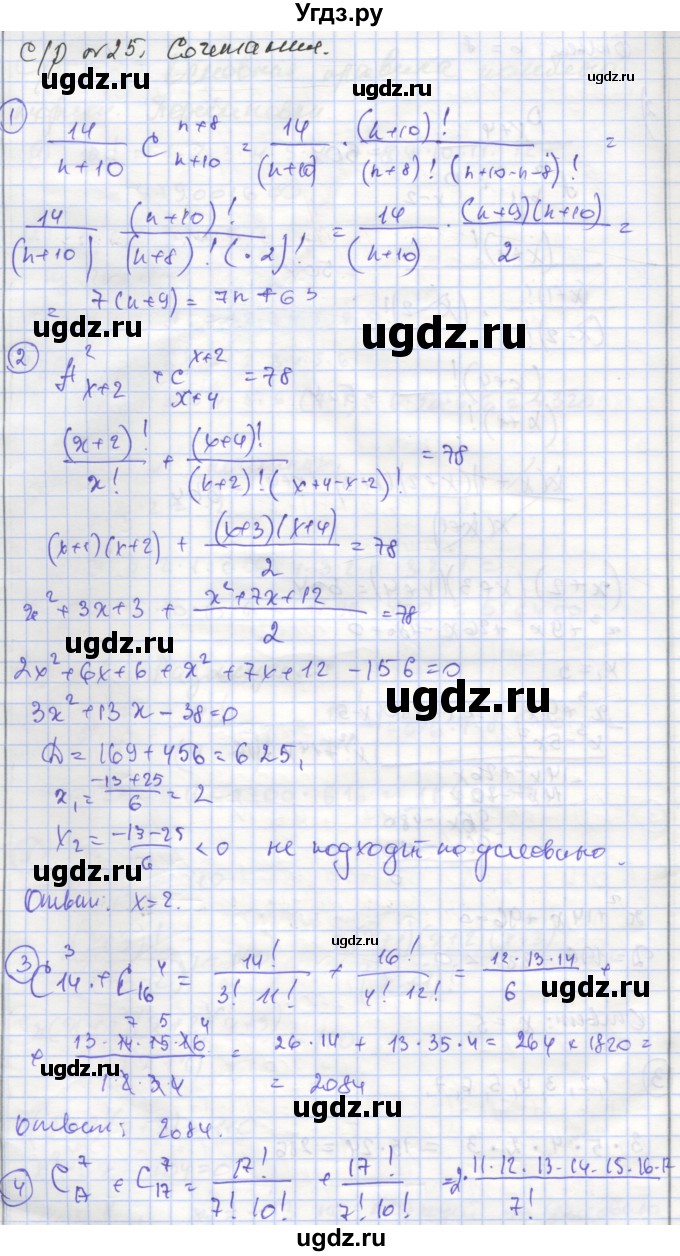 Угдз.ру
С/р №25. Сочетания.
ugdz.ru
ugdz.ru
① 14/(n+10) C_{n+10}^{n+8} = 14/(n+10) · (n+10)!/((n+8)! (n+10-n-8)!) =
ugdz.ru
14/(n+10) (n+10)!/((n+8)! (·2)!) = 14/(n+10) · (n+9)(n+10)/2 =
= 7(n+9) = 7n+63
ugdz.ru ugdz.ru
② A_{x+2}^{2} + C_{x+4}^{x+2} = 78
(x+2)!/x! + (x+4)!/((x+2)!(x+4-x-2)!) = 78
ugdz.ru
(x+1)(x+2) + (x+3)(x+4)/2 = 78
x²+3x+3 + (x²+7x+12)/2 = 78
ugdz.ru
2x²+6x+6+x²+7x+12-156=0
ugdz.ru
3x²+13x-38=0
D=169+456=625,
x₁=(-13+25)/6=2
x₂=(-13-25)/6<0 не подходит по условию.
ugdz.ru
Ответ: x=2.
ugdz.ru
③ C_{14}^{3}+C_{16}^{4} = 14!/(3! 11!) + 16!/(4! 12!) = 12·13·14/6 +
ugdz.ru
+ 13·14·15·16/(1·2·3·4) = 26·14 + 13·35·4 = 264 + 1820 =
7 5 4
= 2084
ugdz.ru ugdz.ru
Ответ: 2084.
④ C_{17}^{7} + C_{17}^{7} = 17!/(7! 10!) + 17!/(7! 10!) = 2·11·12·13·14·15·16·17/7!
ugdz.ru ugdz.ru